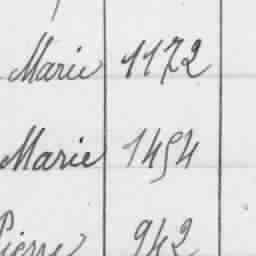 Marie 1172
Marie 1454
Pierre 942